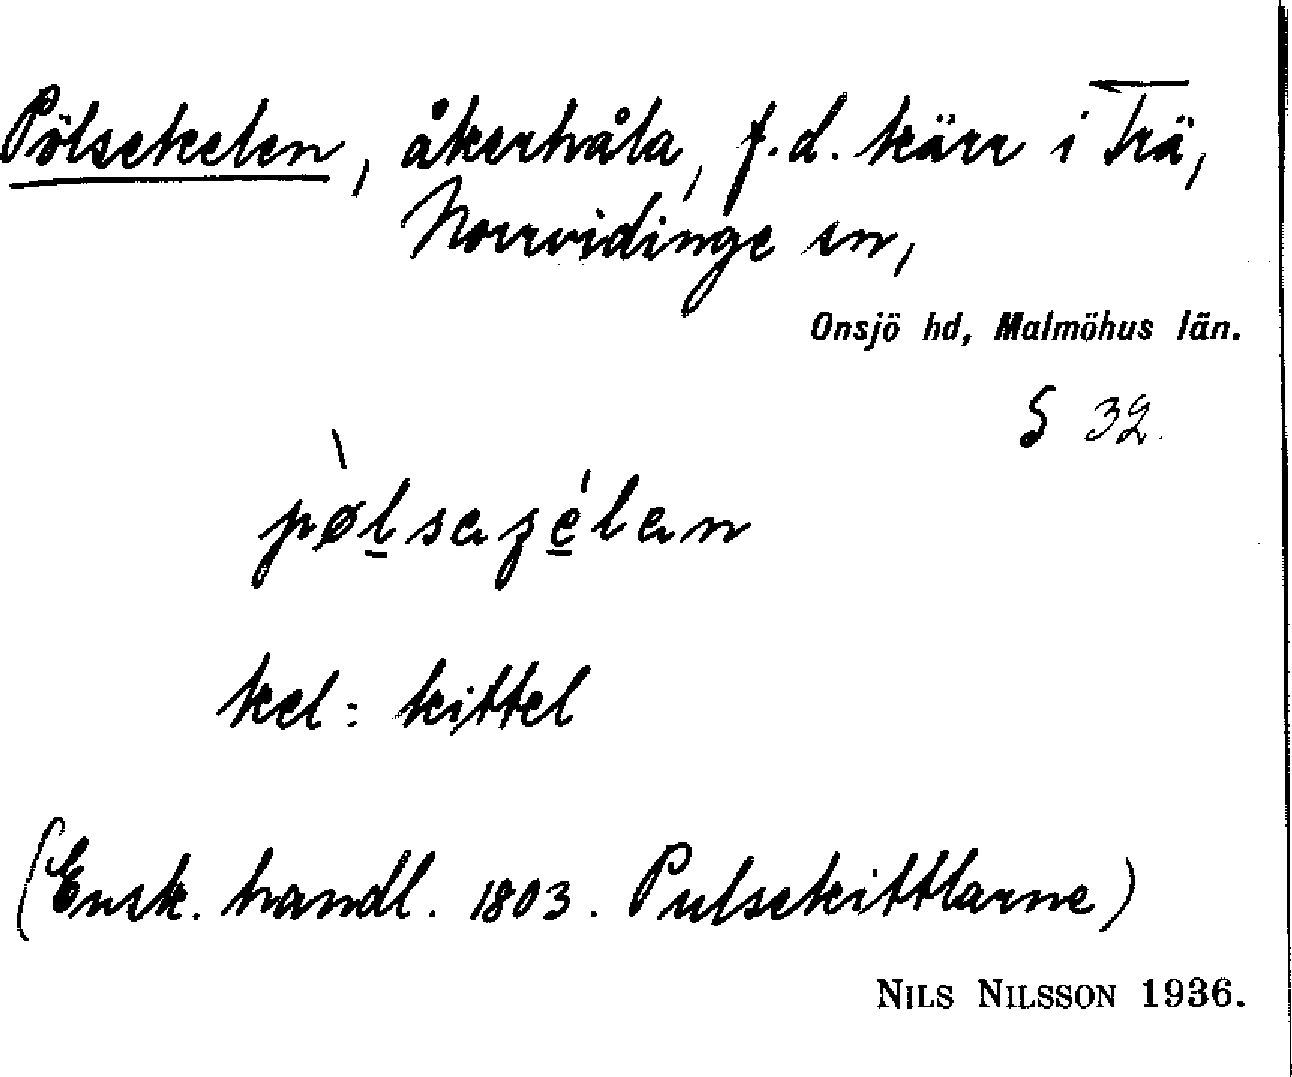 Pölsekelen, åkerhåla, f.d. kärr i Trä,
Norrvidinge sn,
Onsjö hd, Malmöhus län.
S 32.
kel: kittel
(Ensk. handl. 1803. Pulsekittlarne)
NILS NILSSON 1936.